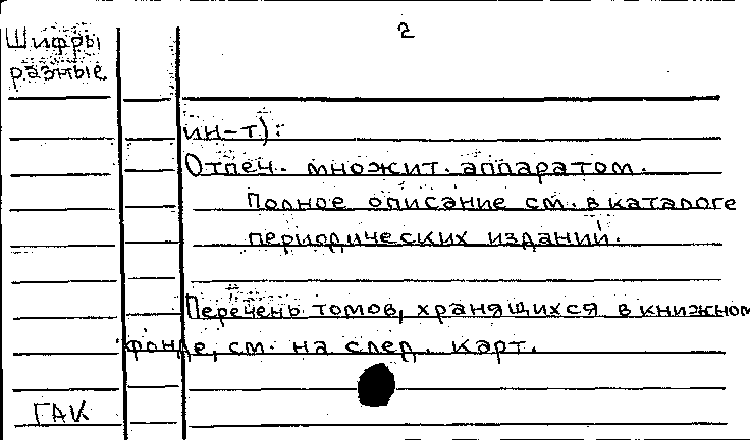 2
Шифры
разные
ин-т):
Отпеч. множит. аппаратом.
Полное описание см. в каталоге
периодических изданий.
Перечень томов, хранящихся в книжном
фонде, см. на след. карт.
ГАК